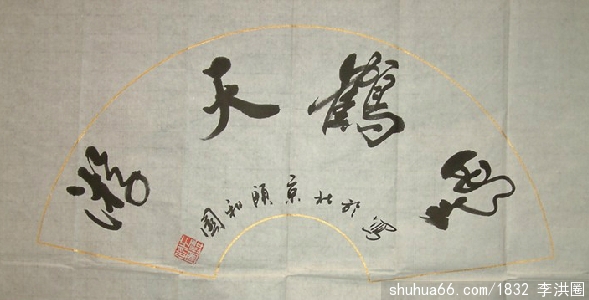 鶴天游
寫於北京頤和園
shuhua66.com/1832 李洪圈